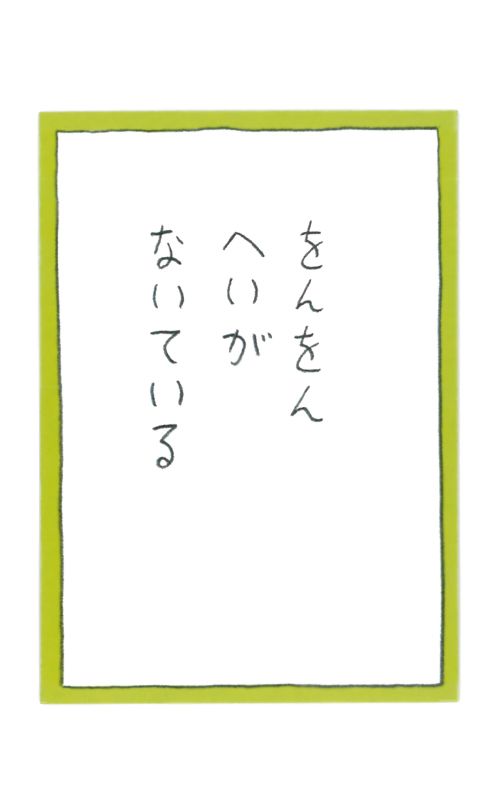 をんをん
へいが
ないている